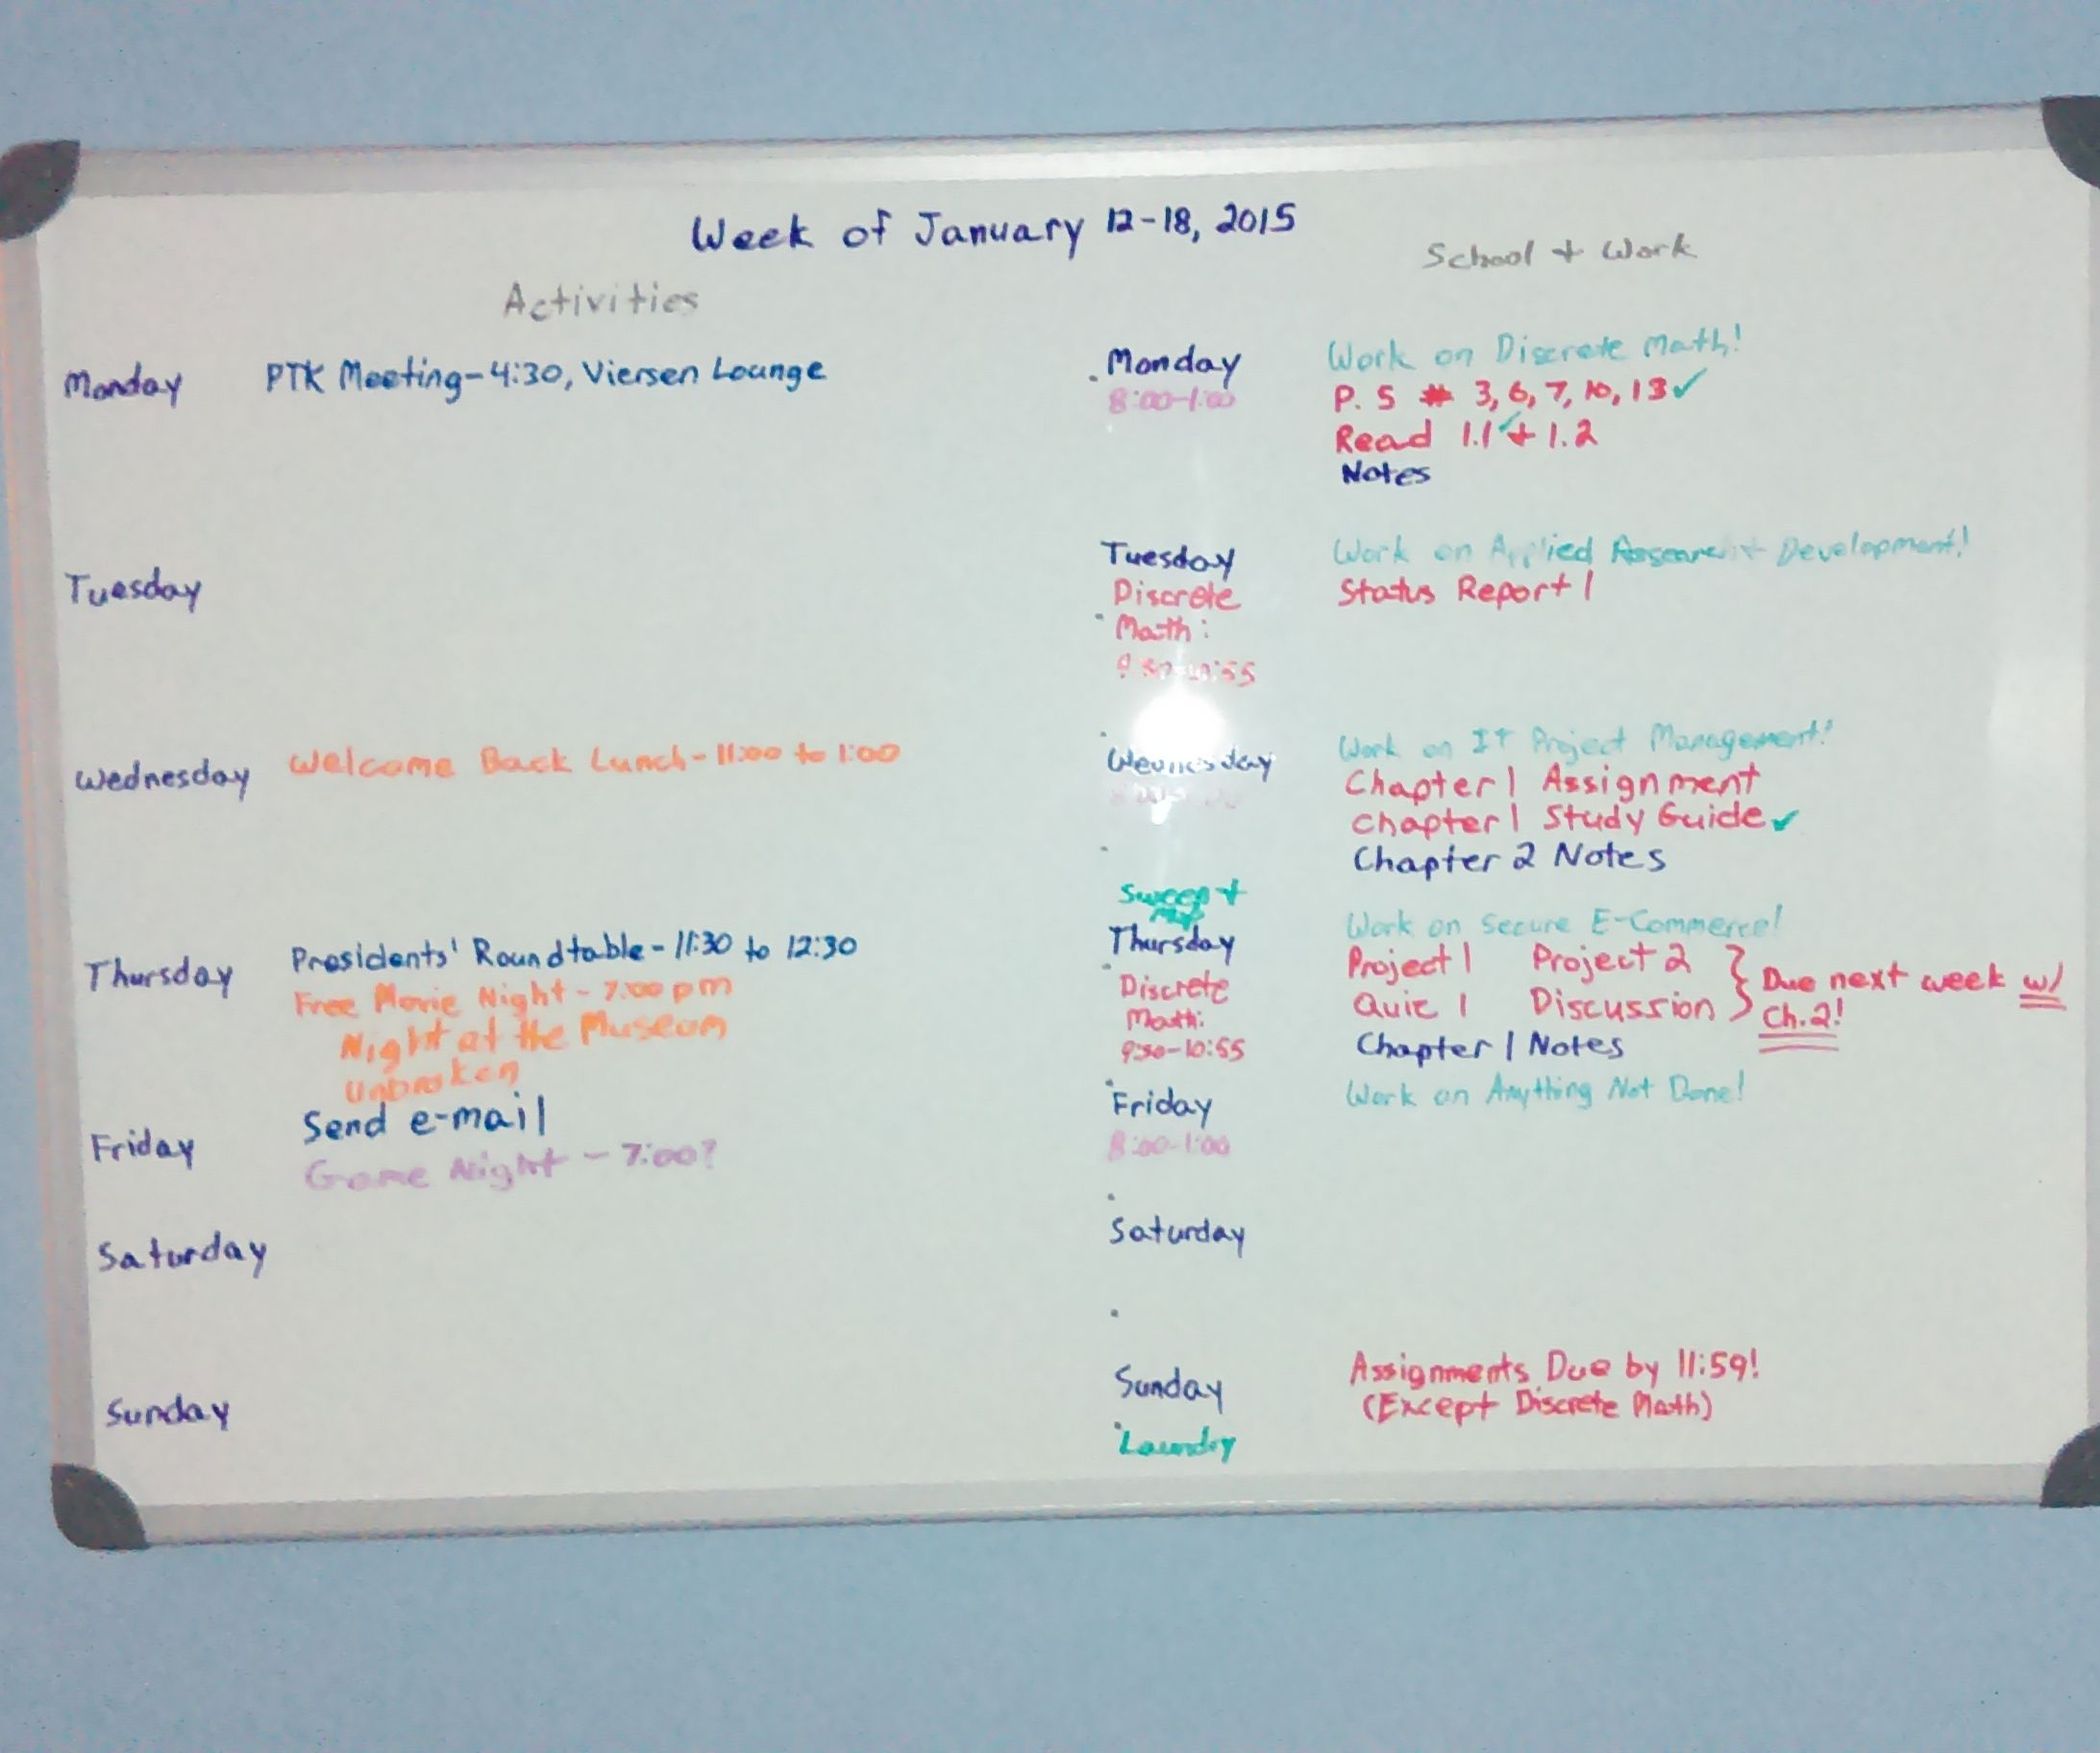 Week of January 12-18, 2015
Activities
Monday PTK Meeting-4:30, Viersen Lounge
Tuesday
Wednesday Welcome Back Lunch-11:00 to 1:00
Thursday Presidents' Roundtable-11:30 to 12:30
Free Movie Night-7:00 pm
Night at the Museum
Unbroken
Send e-mail
Friday
Game Night - 7:00?
Saturday
Sunday
School + Work
Monday Work on Discrete Math!
8:00-1:00 P. 5 # 3, 6, 7, 10, 13 ✓
Read 1.1 ✓ + 1.2
Notes
Tuesday Work on Applied Research + Development!
Discrete Status Report 1
Math:
9:30-10:55
Wednesday Work on IT Project Management!
Chapter 1 Assignment
Chapter 1 Study Guide ✓
Chapter 2 Notes
Sweep +
Mop
Work on Secure E-Commerce!
Thursday Project 1 Project 2 } Due next week w/
Discrete Quiz 1 Discussion } Ch. 2!
Math: Chapter 1 Notes
9:30-10:55
Friday Work on Anything Not Done!
8:00-1:00
Saturday
Sunday Assignments Due by 11:59!
(Except Discrete Math)
Laundry